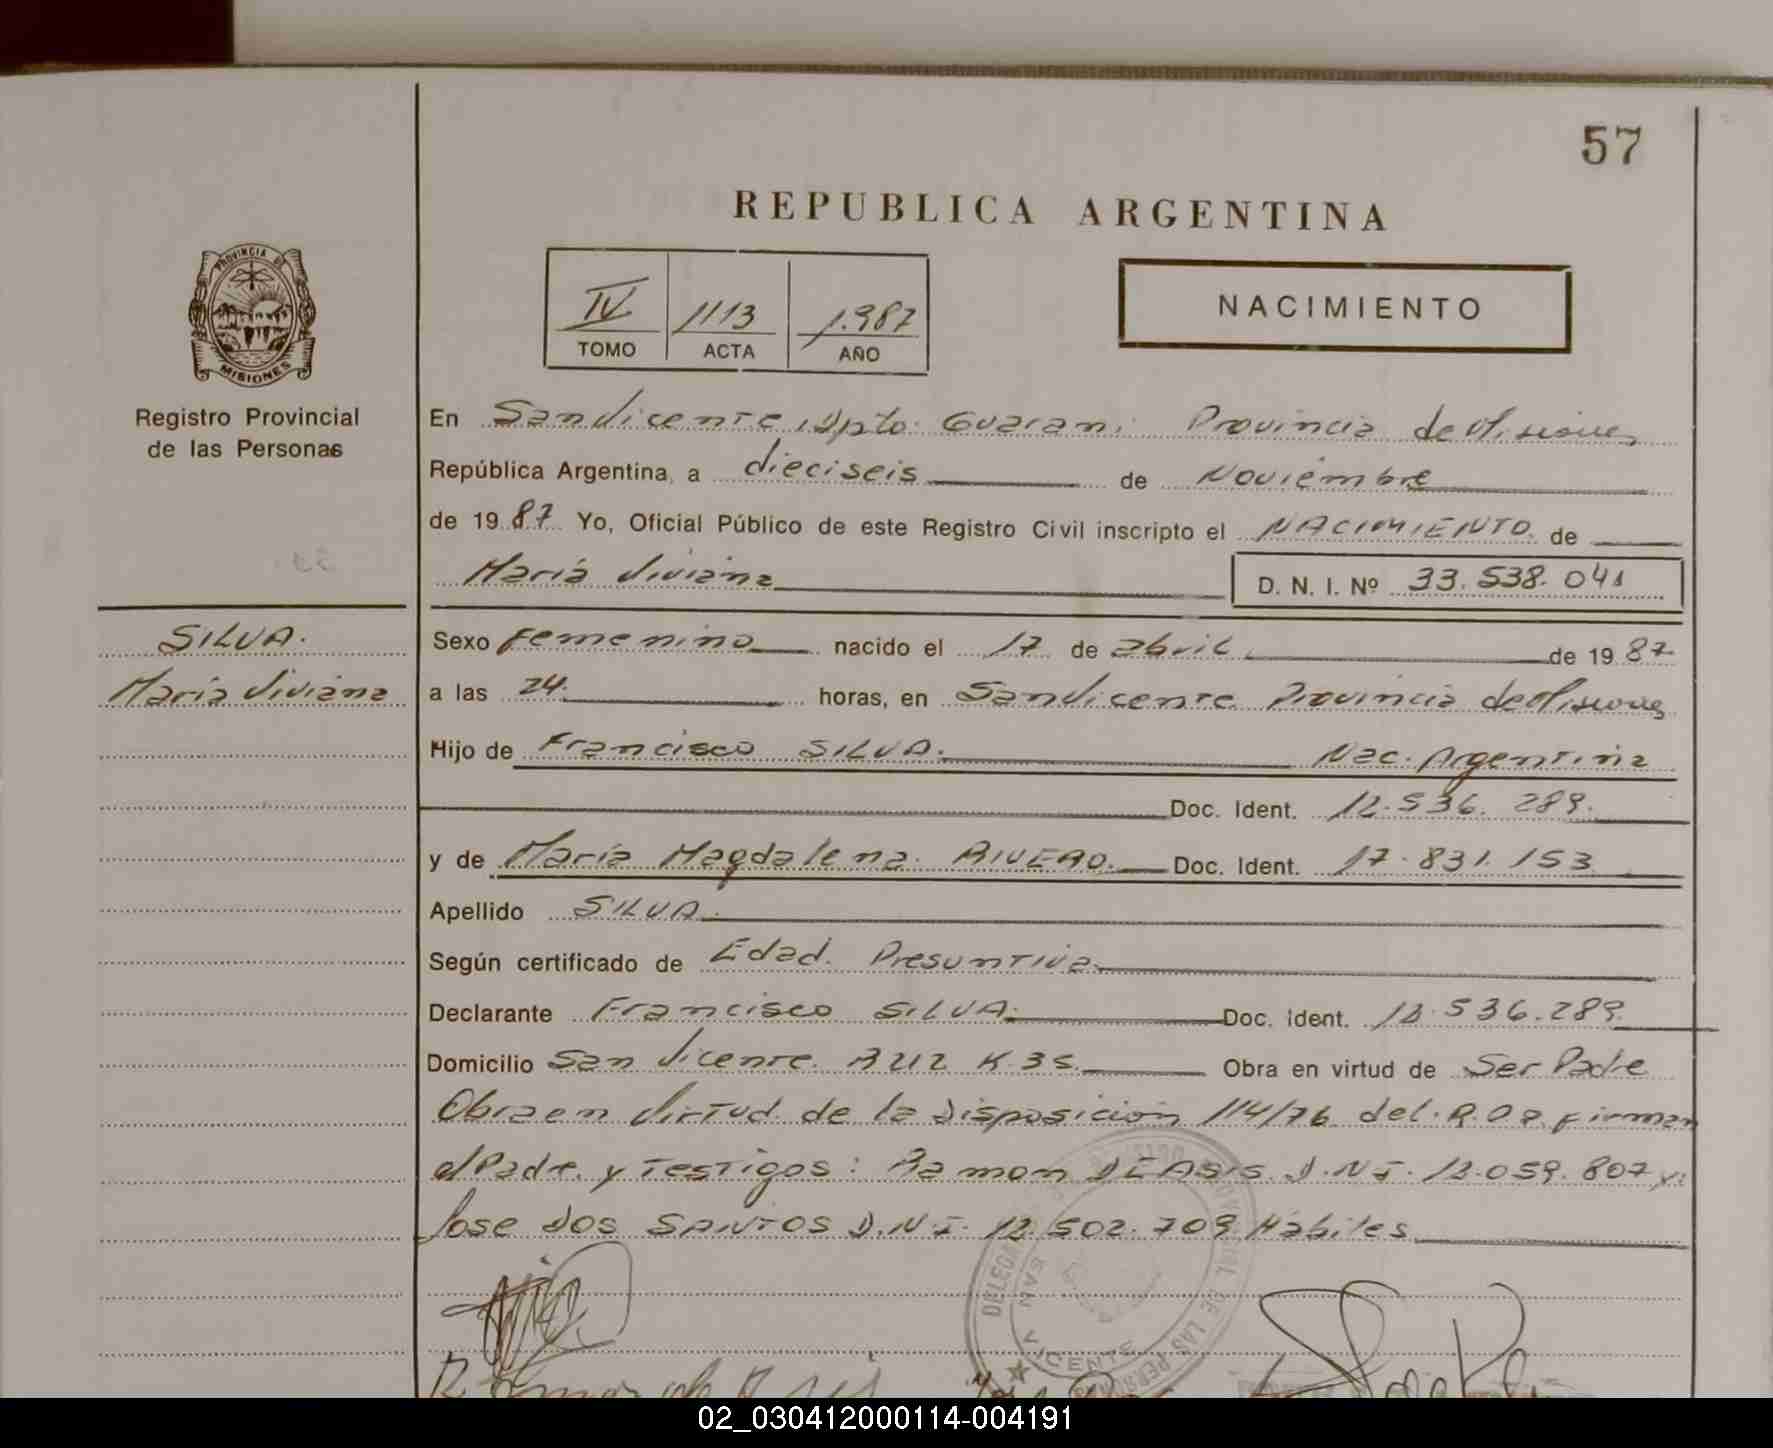 57
REPUBLICA ARGENTINA
PROVINCIA DE
MISIONES
Registro Provincial
de las Personas
IV 1113 1.987
TOMO ACTA AÑO
NACIMIENTO
En San Vicente, Dpto. Guaraní Provincia de Misiones
República Argentina, a dieciseis de Noviembre
de 1987 Yo, Oficial Público de este Registro Civil inscripto el NACIMIENTO de
María Viviana D. N. I. Nº 33.538.041
SILVA.
María Viviana
Sexo Femenino nacido el 17 de abril de 1987
a las 24. horas, en San Vicente Provincia de Misiones
Hijo de Francisco SILVA. Nac. Argentina
Doc. Ident. 12.536.289.
y de María Magdalena RIVERO. Doc. Ident. 17.831.153
Apellido SILVA.
Según certificado de Edad Presuntiva
Declarante Francisco SILVA. Doc. Ident. 12.536.289.
Domicilio San Vicente RUTA K.35. Obra en virtud de Ser Padre
Obra en virtud de la Disposición 114/76 del R.O.P. firman
el Padre y Testigos: Ramon DE ASIS. D.N.I. 12.059.807 y
Jose DOS SANTOS D.N.I. 12.502.709 Hábiles
SAN VICENTE
02_030412000114-004191